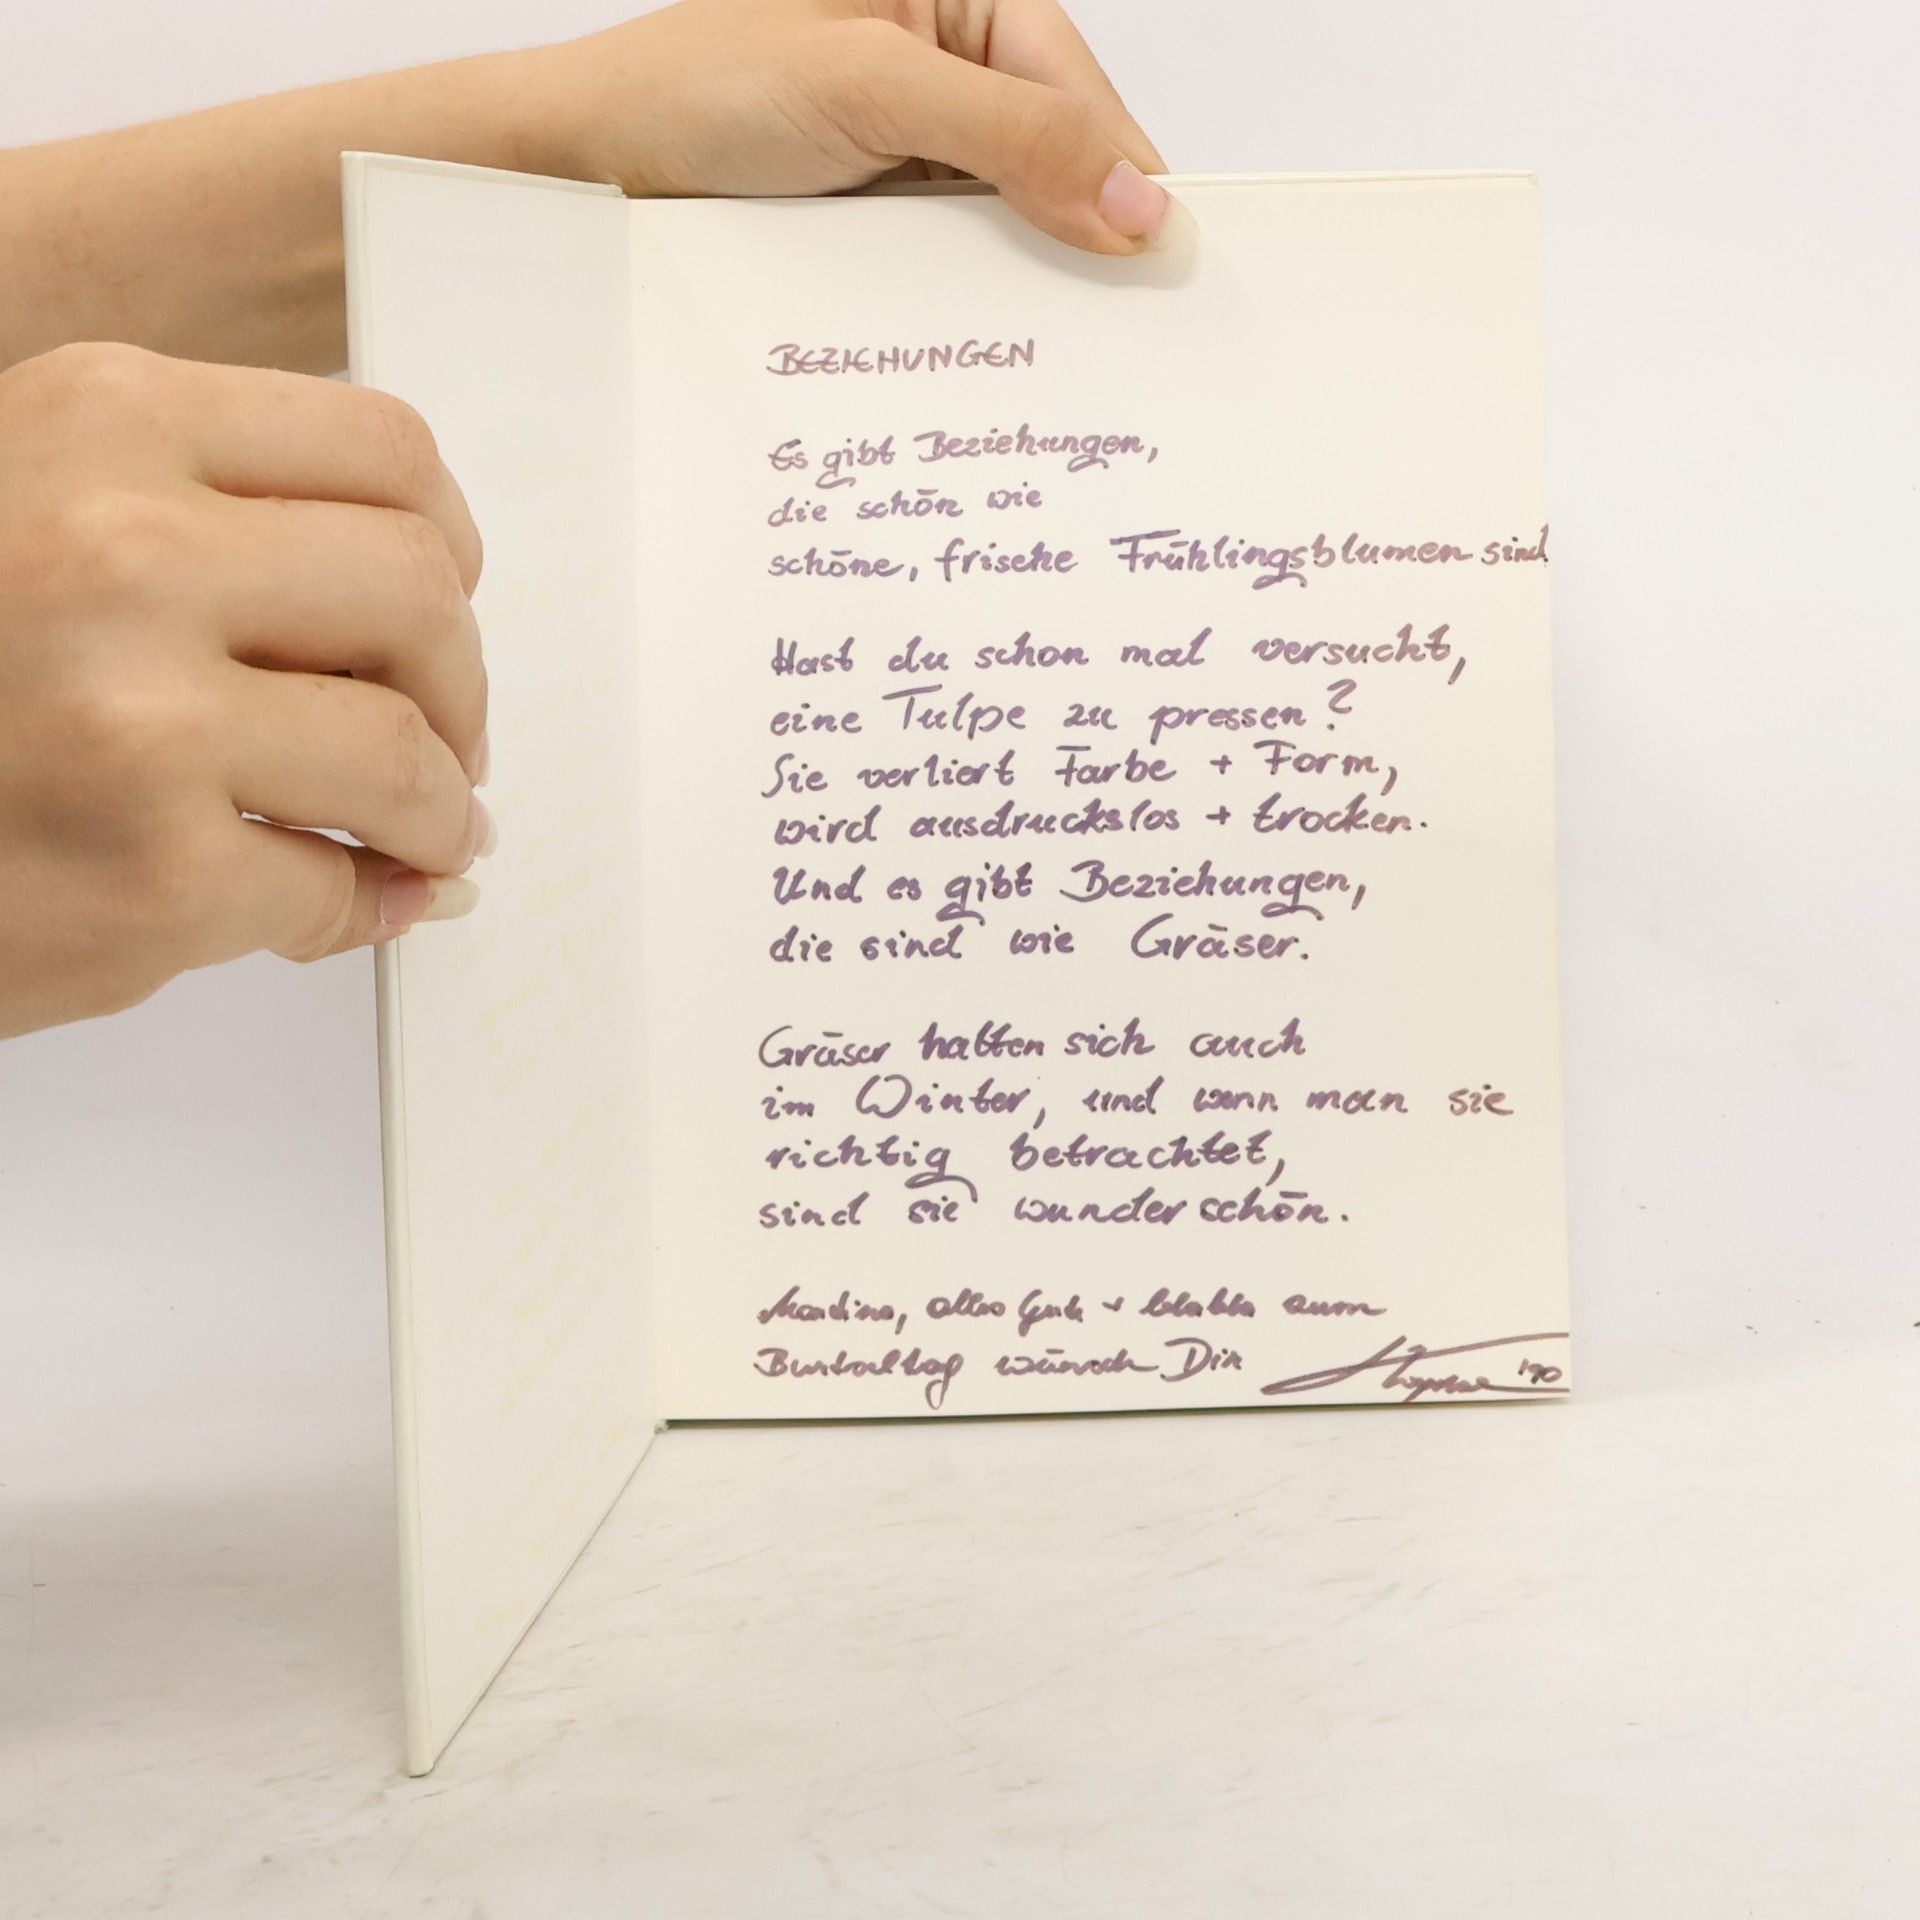 BEZIEHUNGEN
Es gibt Beziehungen,
die schön wie
schöne, frische Frühlingsblumen sind.
Hast du schon mal versucht,
eine Tulpe zu pressen?
Sie verliert Farbe + Form,
wird ausdruckslos + trocken.
Und es gibt Beziehungen,
die sind wie Gräser.
Gräser halten sich auch
im Winter, und wenn man sie
richtig betrachtet,
sind sie wunderschön.
alles Gute + blabla zum
wünsch Dir '90